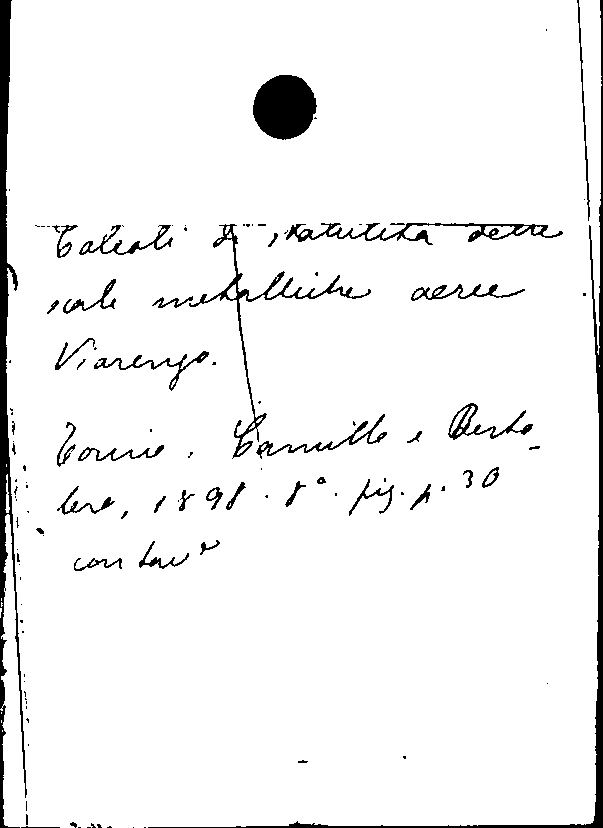 Calcoli di stabilità delle
scale metalliche aeree
Viarengo.
Torino. Camilla e Berto-
lero, 1898. 8°. fig. p. 30
con tav<sup>e</sup>